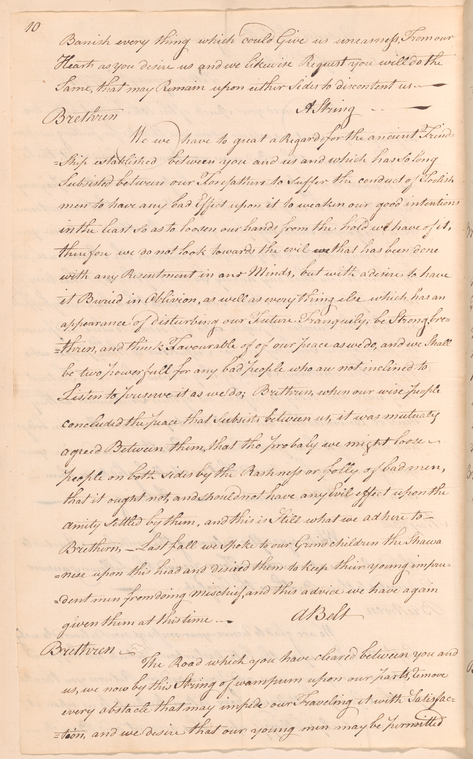 10
Banish every thing which could Give us uneasiness, From our
Hearts as you desire us and we likewise Request you will do the
Same, that may Remain upon either Sides to discontent us
A String
Brethren
We we have to great a Regard for the ancient Friend
=Ship established between you and us and which has so long
Subsisted between our Forefathers to Suffer the conduct of Foolish
men to have any bad Effect upon it to weaken our good intentions
in the least So as to loosen our hands from the hold we have of it,
therefore we do not look towards the evil we that has been done
with any Resentment in our Minds, but with a desire to have
it Buried in Oblivion, as well as every thing else which has an
appearance of disturbing our Future Tranquility, be Strong Bre
=thren, and think Favourable of of our peace as we do, and we Shall
be two powerfull for any bad people who are not inclined to
Listen to preserve it as we do; Brethren, when our wise people
concluded the peace that Subsists between us, it was mutualy
agreed Between them, that tho probaly we might loose
people on both sides by the Rashness or folly of bad men,
that it ought not, and should not have any Evil effect upon the
amity settled by them, and this is Still what we adhere to
Brethern, Last fall we Spoke to our Grandchildren the Shawa
=nese upon this head and desired them to keep their young impru
=dent men from doing mischief, and this advice we have again
given them at this time A Belt
Brethren
The Road which you have cleared between you and
us, we now by this String of wampum upon our parts, remove
every abstacle that may impede our Traveling it with Satisfac
=tion, and we desire that our young men may be permitted